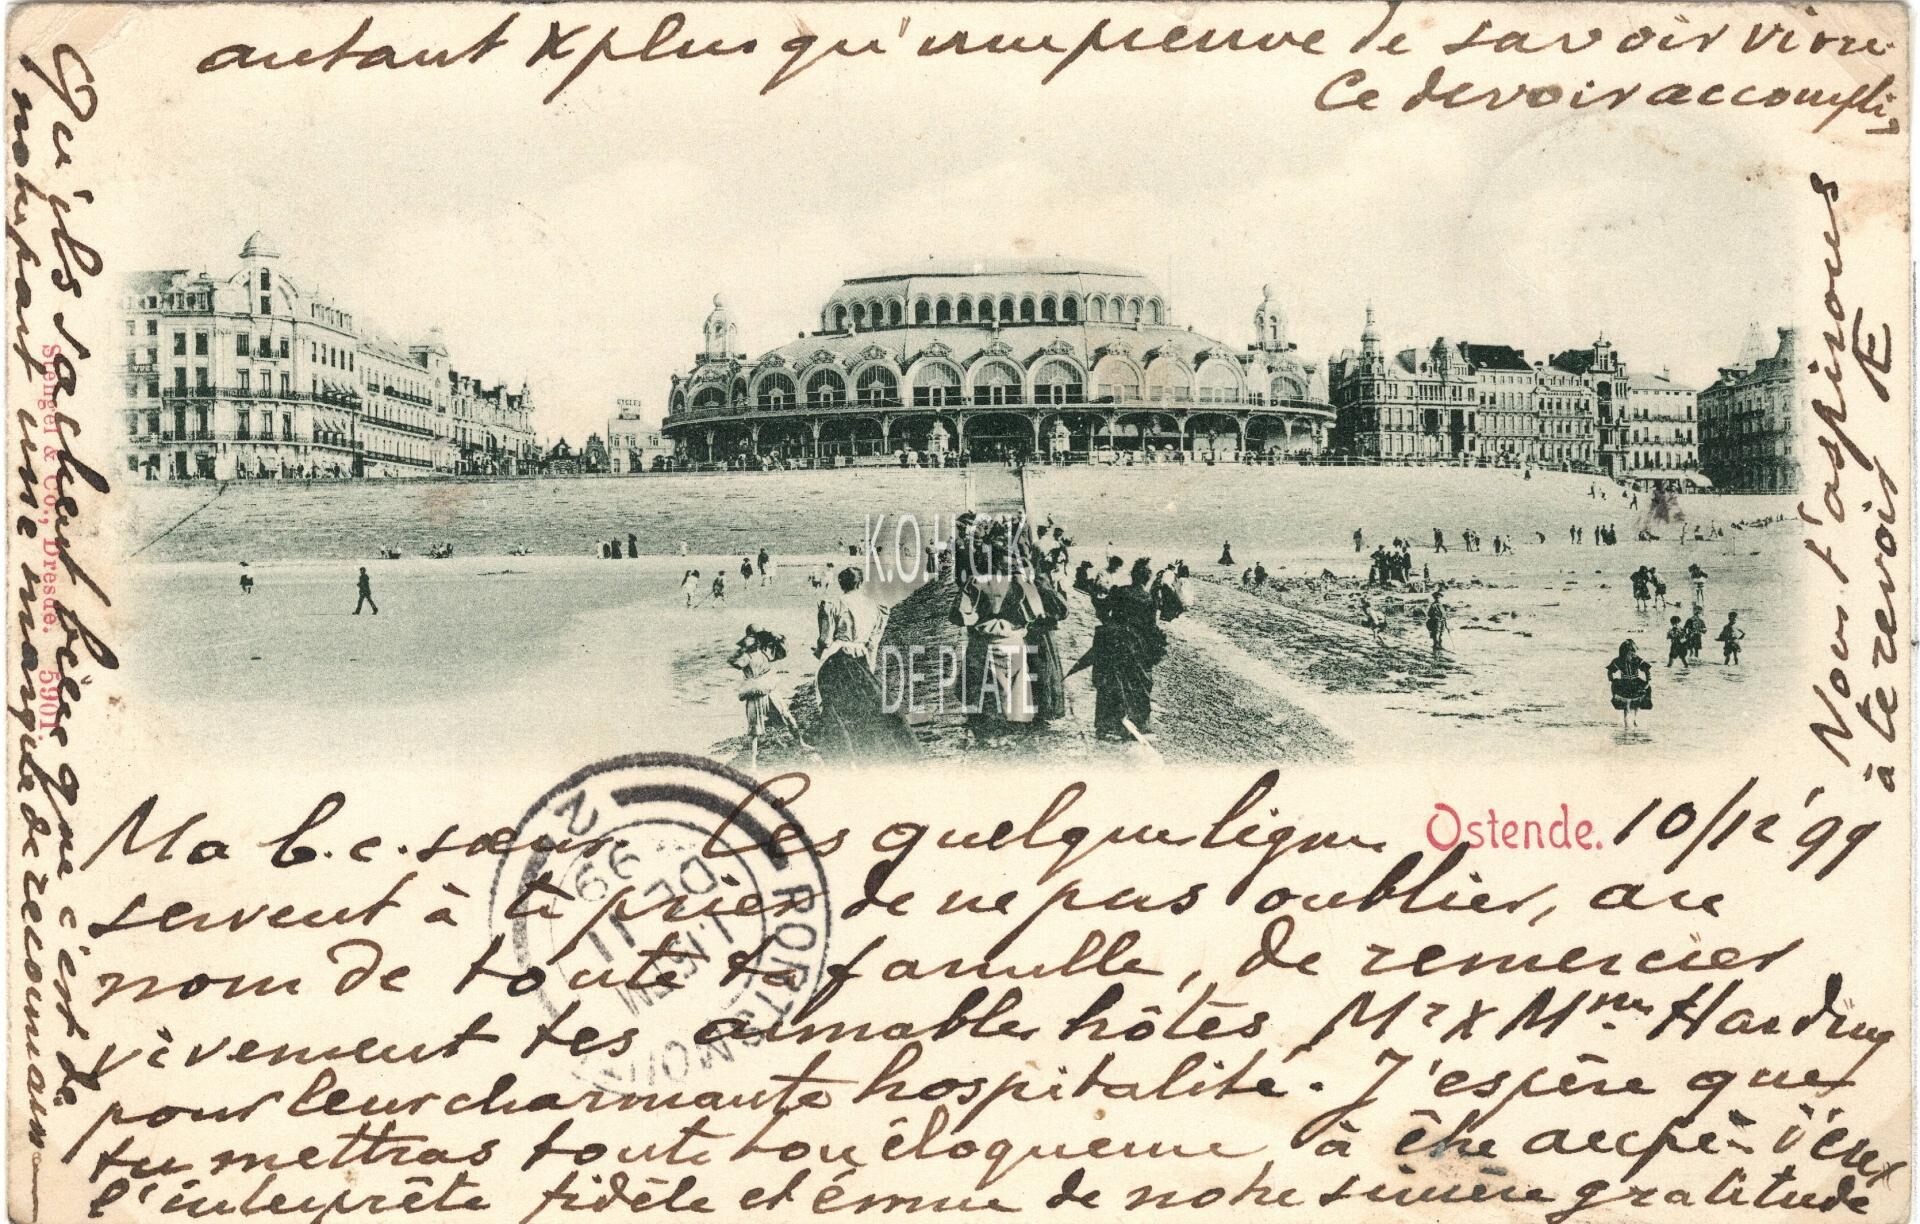 Ostende. 10/12 '99
Ma b. c. sœur. Ces quelques lignes
servent à te prier de ne pas oublier, au
nom de toute ta famille, de remercier
vivement tes aimables hôtes Mr & Mme Harding
pour leur charmante hospitalité. J'espère que
tu mettras toute ton éloquence à être auprès d'eux
l'interprète fidèle et émue de notre sincère gratitude
Qu'ils sachent bien que c'est de
notre part une marque de
autant & plus qu'une preuve de savoir vivre.
Ce devoir accompli,
Nous t'aspirons
à te revoir E
Stengel & Co., Dresde. 5901.
K.O.H.G.K.
DE PLATE
PORTSMOUTH
DE 11
99
2